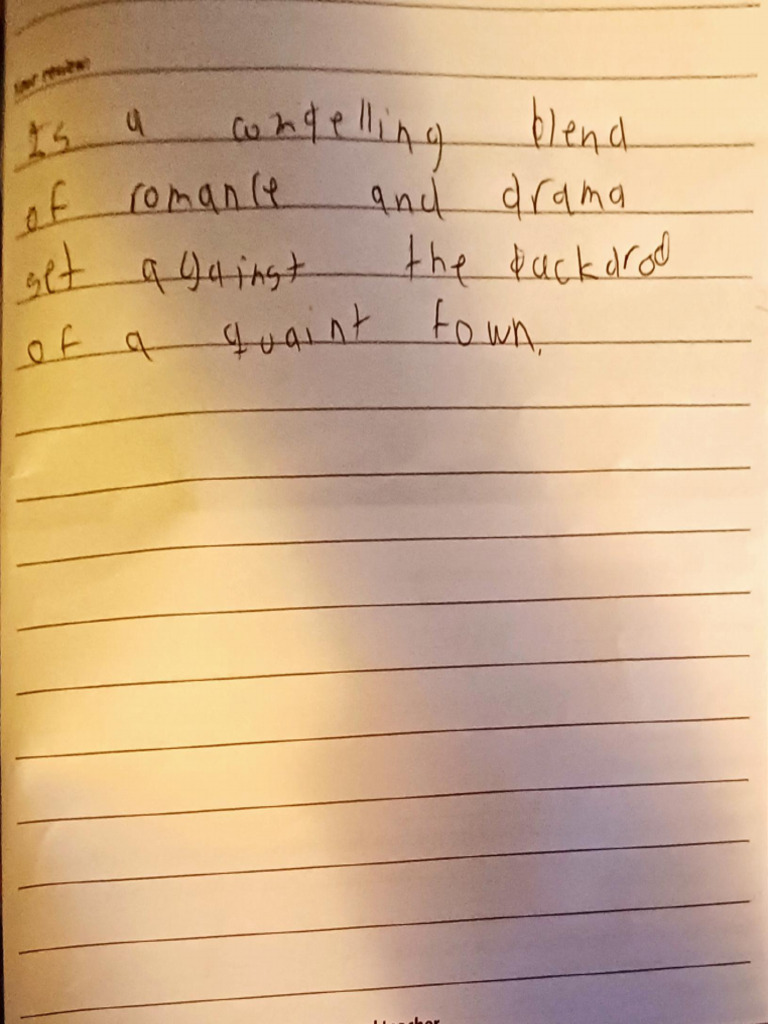 your review:
Is a compelling blend
of romance and drama
set against the backdrop
of a quaint town.